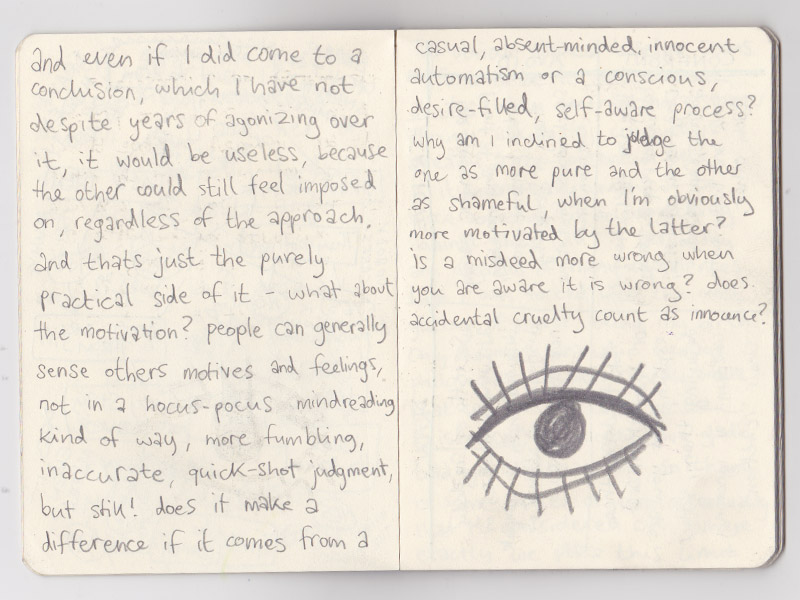 and even if I did come to a
conclusion, which I have not
despite years of agonizing over
it, it would be useless, because
the other could still feel imposed
on, regardless of the approach.
and thats just the purely
practical side of it - what about
the motivation? people can generally
sense others motives and feelings,
not in a hocus-pocus mindreading
kind of way, more fumbling,
inaccurate, quick-shot judgment,
but still! does it make a
difference if it comes from a
casual, absent-minded, innocent
automatism or a conscious,
desire-filled, self-aware process?
why am I inclined to judge the
one as more pure and the other
as shameful, when I'm obviously
more motivated by the latter?
is a misdeed more wrong when
you are aware it is wrong? does
accidental cruelty count as innocence?